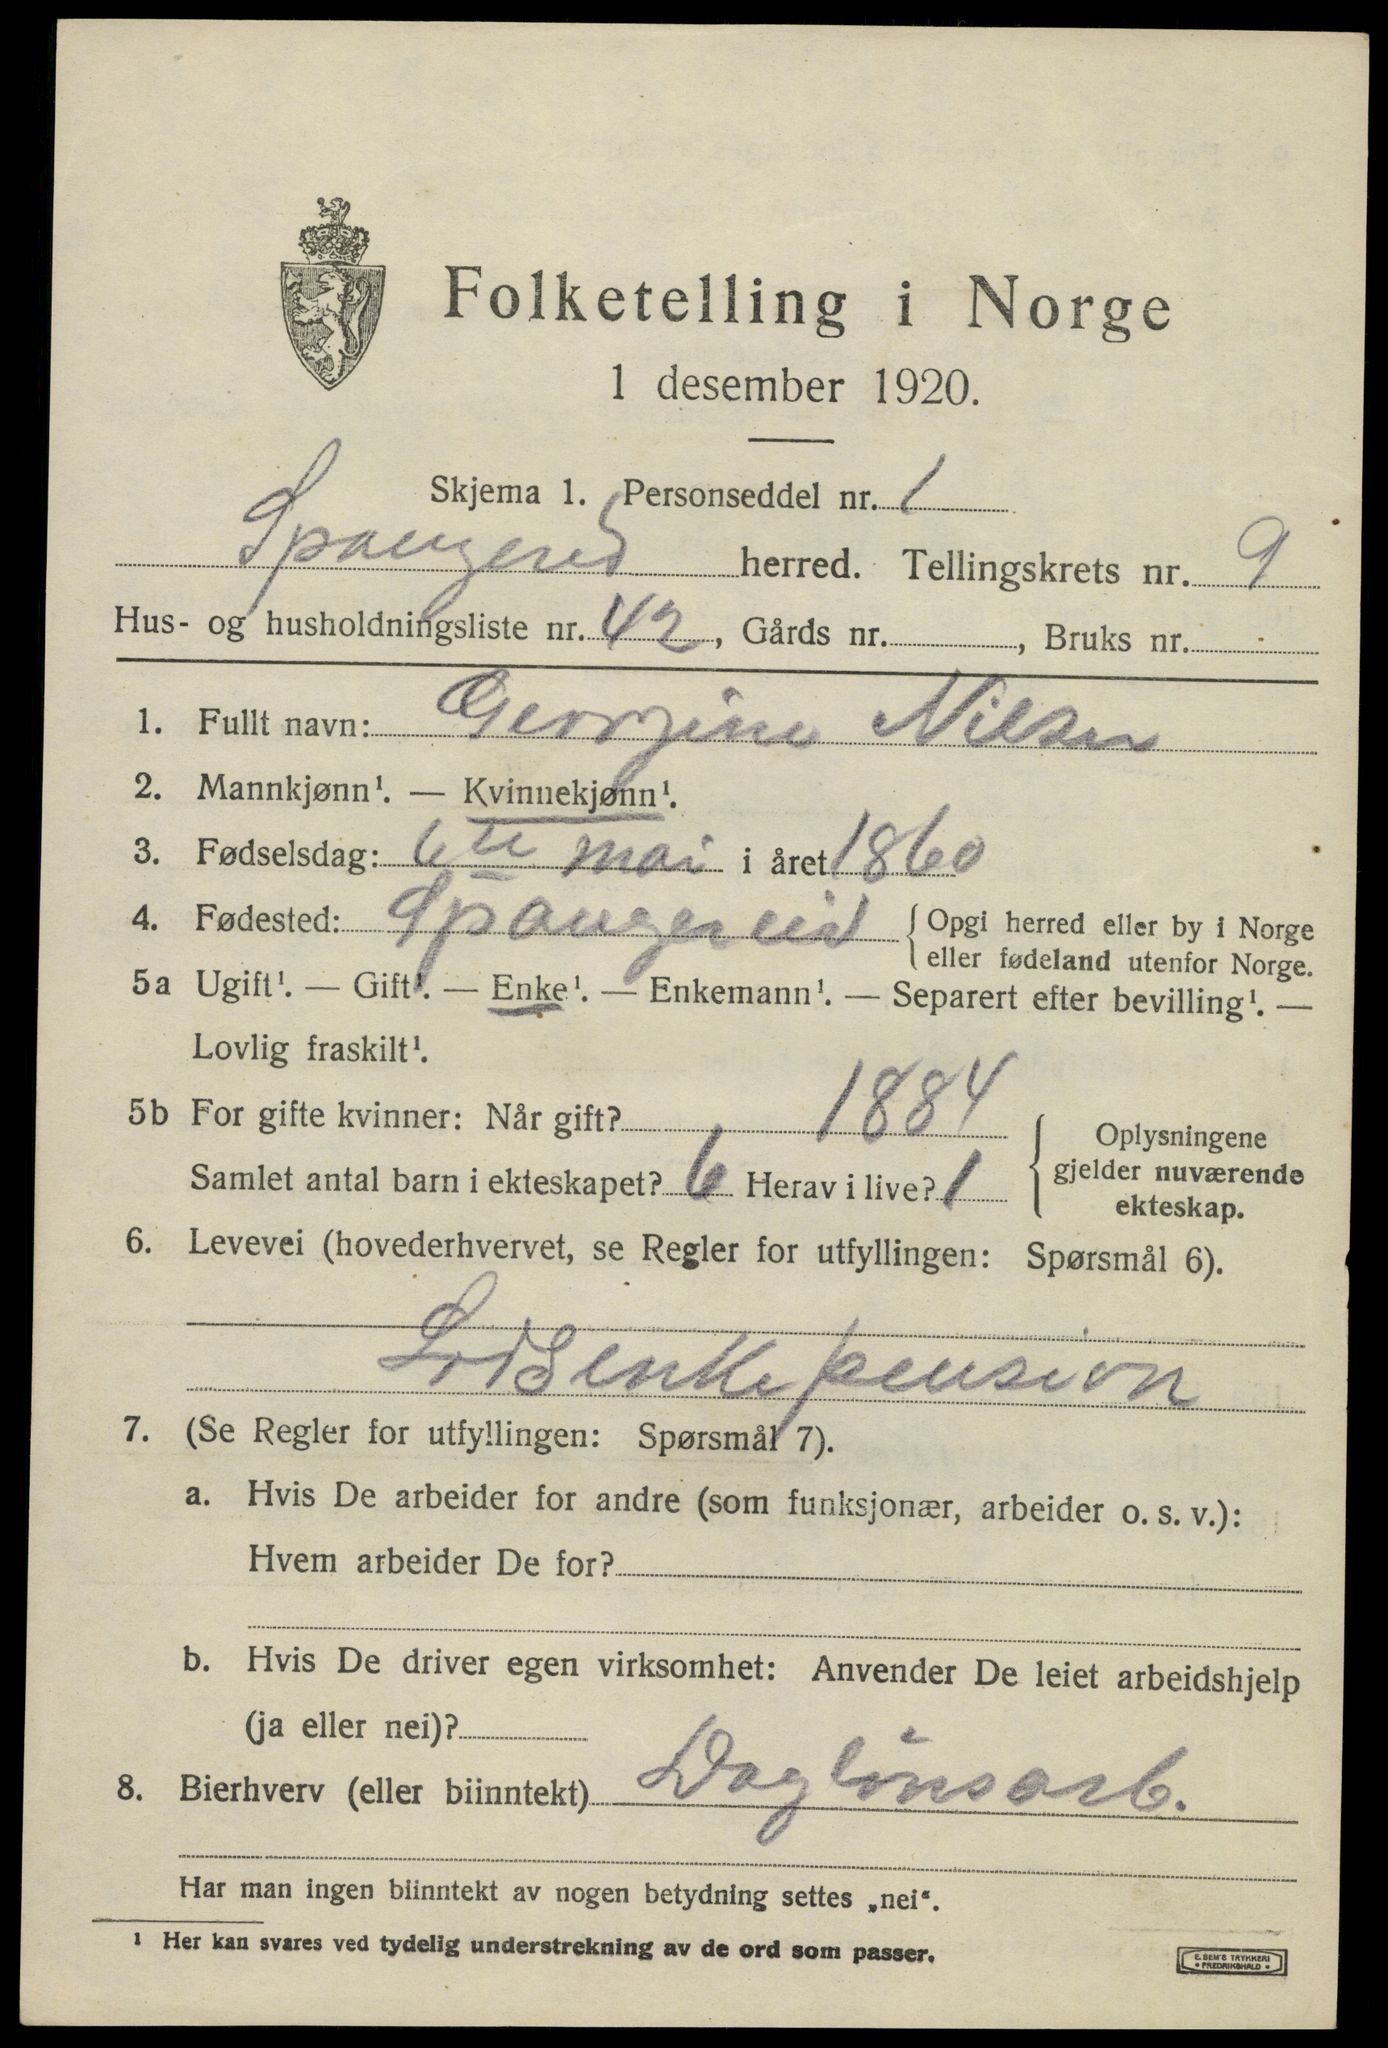 Folketelling i Norge
1 desember 1920.
Skjema 1. Personseddel nr. 1
Spangereid herred. Tellingskrets nr. 9
Hus- og husholdningsliste nr. 42, Gårds nr. , Bruks nr.
1. Fullt navn: Georgine Nilsen
2. Mannkjønn¹. — Kvinnekjønn¹.
3. Fødselsdag: 6te mai i året 1860
4. Fødested: Spangereid { Opgi herred eller by i Norge
eller fødeland utenfor Norge.
5a Ugift¹. — Gift¹. — Enke¹. — Enkemann¹. — Separert efter bevilling¹. —
Lovlig fraskilt¹.
5b For gifte kvinner: Når gift? 1884
Samlet antal barn i ekteskapet? 6 Herav i live? 1
Oplysningene
gjelder nuværende
ekteskap.
6. Levevei (hovederhvervet, se Regler for utfyllingen: Spørsmål 6).
Lodsenkepension
7. (Se Regler for utfyllingen: Spørsmål 7).
a. Hvis De arbeider for andre (som funksjonær, arbeider o. s. v.):
Hvem arbeider De for?
b. Hvis De driver egen virksomhet: Anvender De leiet arbeidshjelp
(ja eller nei)?
8. Bierhverv (eller biinntekt) Daglönsarb.
Har man ingen biinntekt av nogen betydning settes „nei“.
¹ Her kan svares ved tydelig understrekning av de ord som passer.
E. SEM'S TRYKKERI
• FREDRIKSHALD •